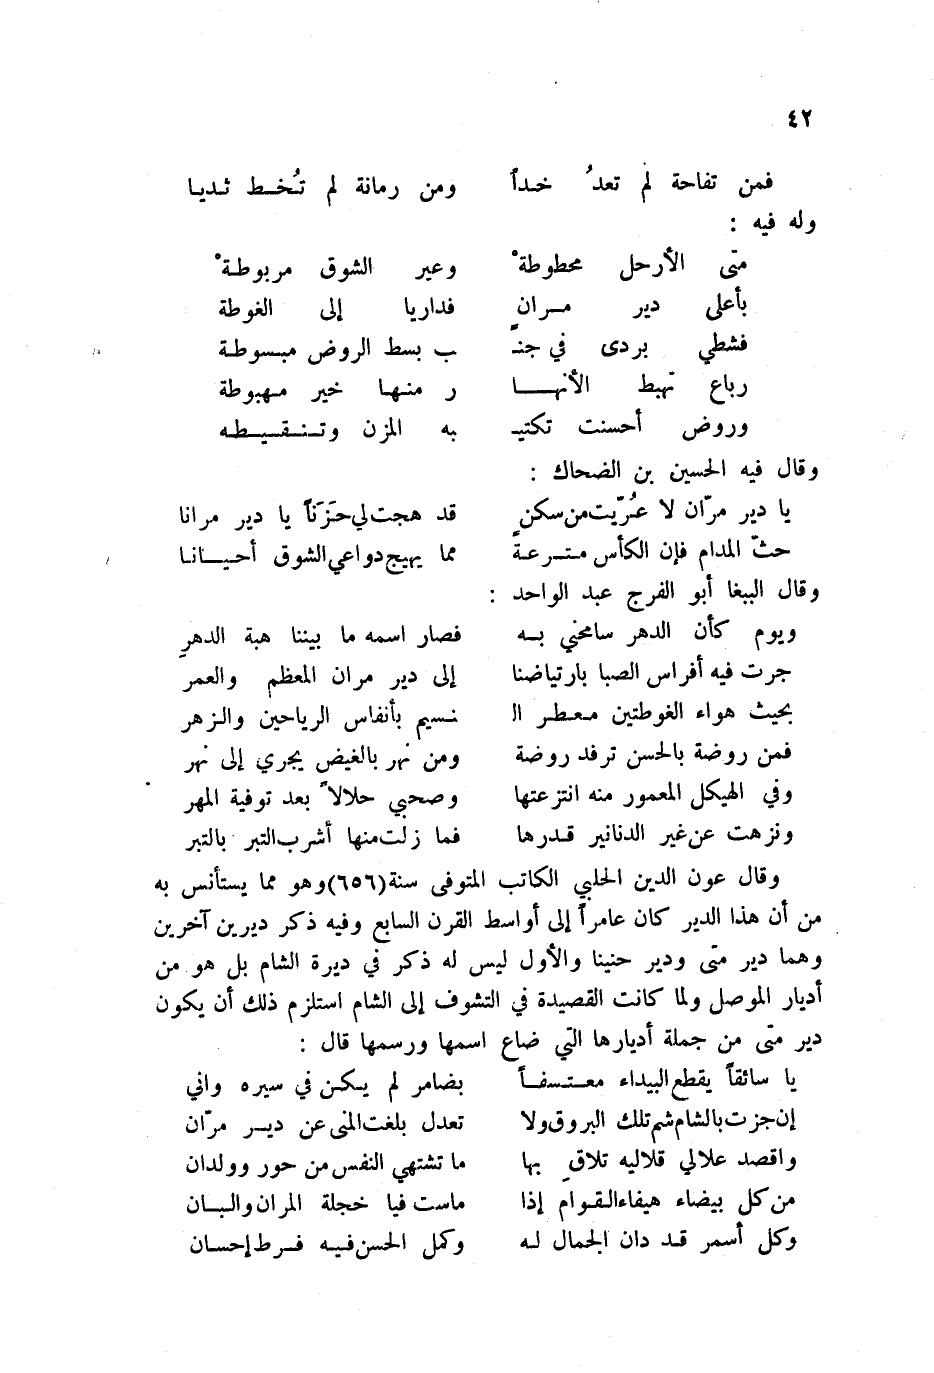 ٤٢
فمن تفاحة لم تعدُ خداً ومن رمانة لم تُخط ثديا
وله فيه :
متى الأرحل محطوطهْ وعير الشوق مربوطهْ
بأعلى دير مران فداريا إلى الغوطة
فشطي بردى في جنـ ـب بسط الروض مبسوطة
رباع تهبط الأنهـا ر منها خير مهبوطة
وروض أحسنت تكتيـ ـبه المزن وتنقيطه
وقال فيه الحسين بن الضحاك :
يا دير مرّان لا عُرّيت من سكنٍ قد هجت لي حَزَناً يا دير مرانا
حثّ المدام فإن الكأس مترعة مما يهيج دواعي الشوق أحيانا
وقال الببغا أبو الفرج عبد الواحد :
ويوم كأن الدهر سامحني به فصار اسمه ما بيننا هبة الدهرِ
جرت فيه أفراس الصبا بارتياضنا إلى دير مران المعظم والعمر
بحيث هواء الغوطتين معطر الـ نسيم بأنفاس الرياحين والزهر
فمن روضة بالحسن ترفد روضة ومن نهر بالغيض يجري إلى نهر
وفي الهيكل المعمور منه انتزعتها وصحبي حلالاً بعد توفية المهر
ونزهت عن غير الدنانير قدرها فما زلت منها أشرب التبر بالتبر
وقال عون الدين الحلبي الكاتب المتوفى سنة (٦٥٦) وهو مما يستأنس به
من أن هذا الدير كان عامراً إلى أواسط القرن السابع وفيه ذكر ديرين آخرين
وهما دير متى ودير حنينا والأول ليس له ذكر في ديرة الشام بل هو من
أديار الموصل ولما كانت القصيدة في التشوف إلى الشام استلزم ذلك أن يكون
دير متى من جملة أديارها التي ضاع اسمها ورسمها قال :
يا سائقاً يقطع البيداء معتسفاً بضامر لم يكن في سيره واني
إن جزت بالشام شم تلك البروق ولا تعدل بلغت المنى عن دير مرّان
واقصد علالي قلاليه تلاقِ بها ما تشتهي النفس من حور وولدان
من كل بيضاء هيفاء القوام إذا ماست فيا خجلة المران والبان
وكل أسمر قد دان الجمال له وكمل الحسن فيه فرط إحسان